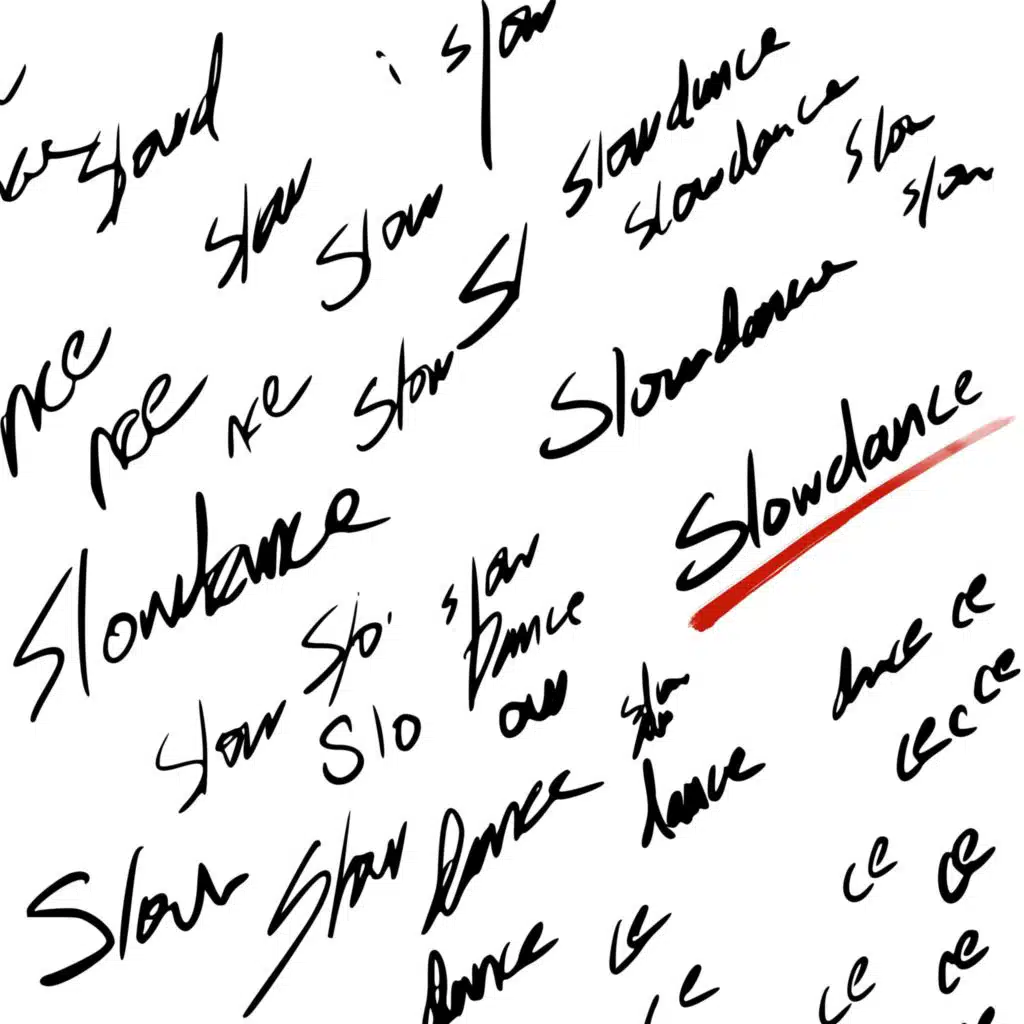 slow
Slowd
Slowdance
slowdance
slow
slow
slow
Slow
Sl
nce
nce
nce
Slow
Slowdance
Slowdance
Slowdance
slow
Dance
Slo
ow
slow
Slo
dance
ce
ce
ce
c
dance
Slow
Slow
Dance
ce
ce
Dance
ce
ce
ce
ce